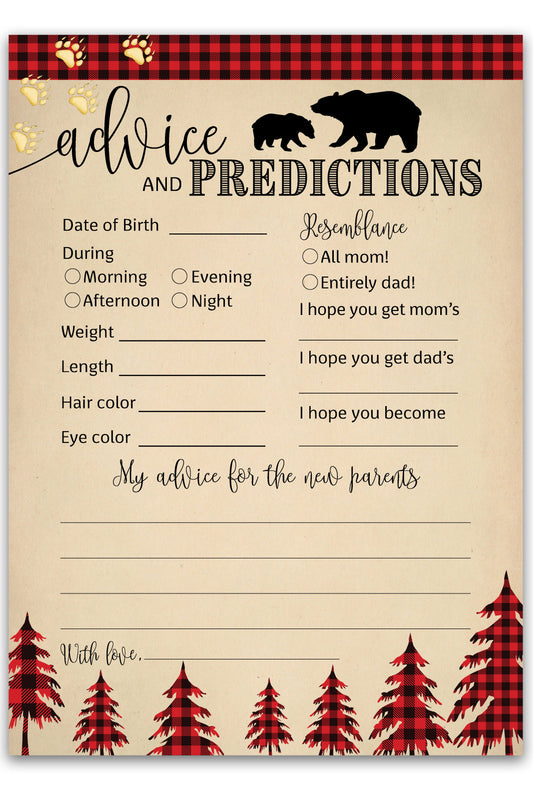 advice
AND PREDICTIONS
Date of Birth
During
Morning Evening
Afternoon Night
Weight
Length
Hair color
Eye color
Resemblance
All mom!
Entirely dad!
I hope you get mom's
I hope you get dad's
I hope you become
My advice for the new parents
With love,